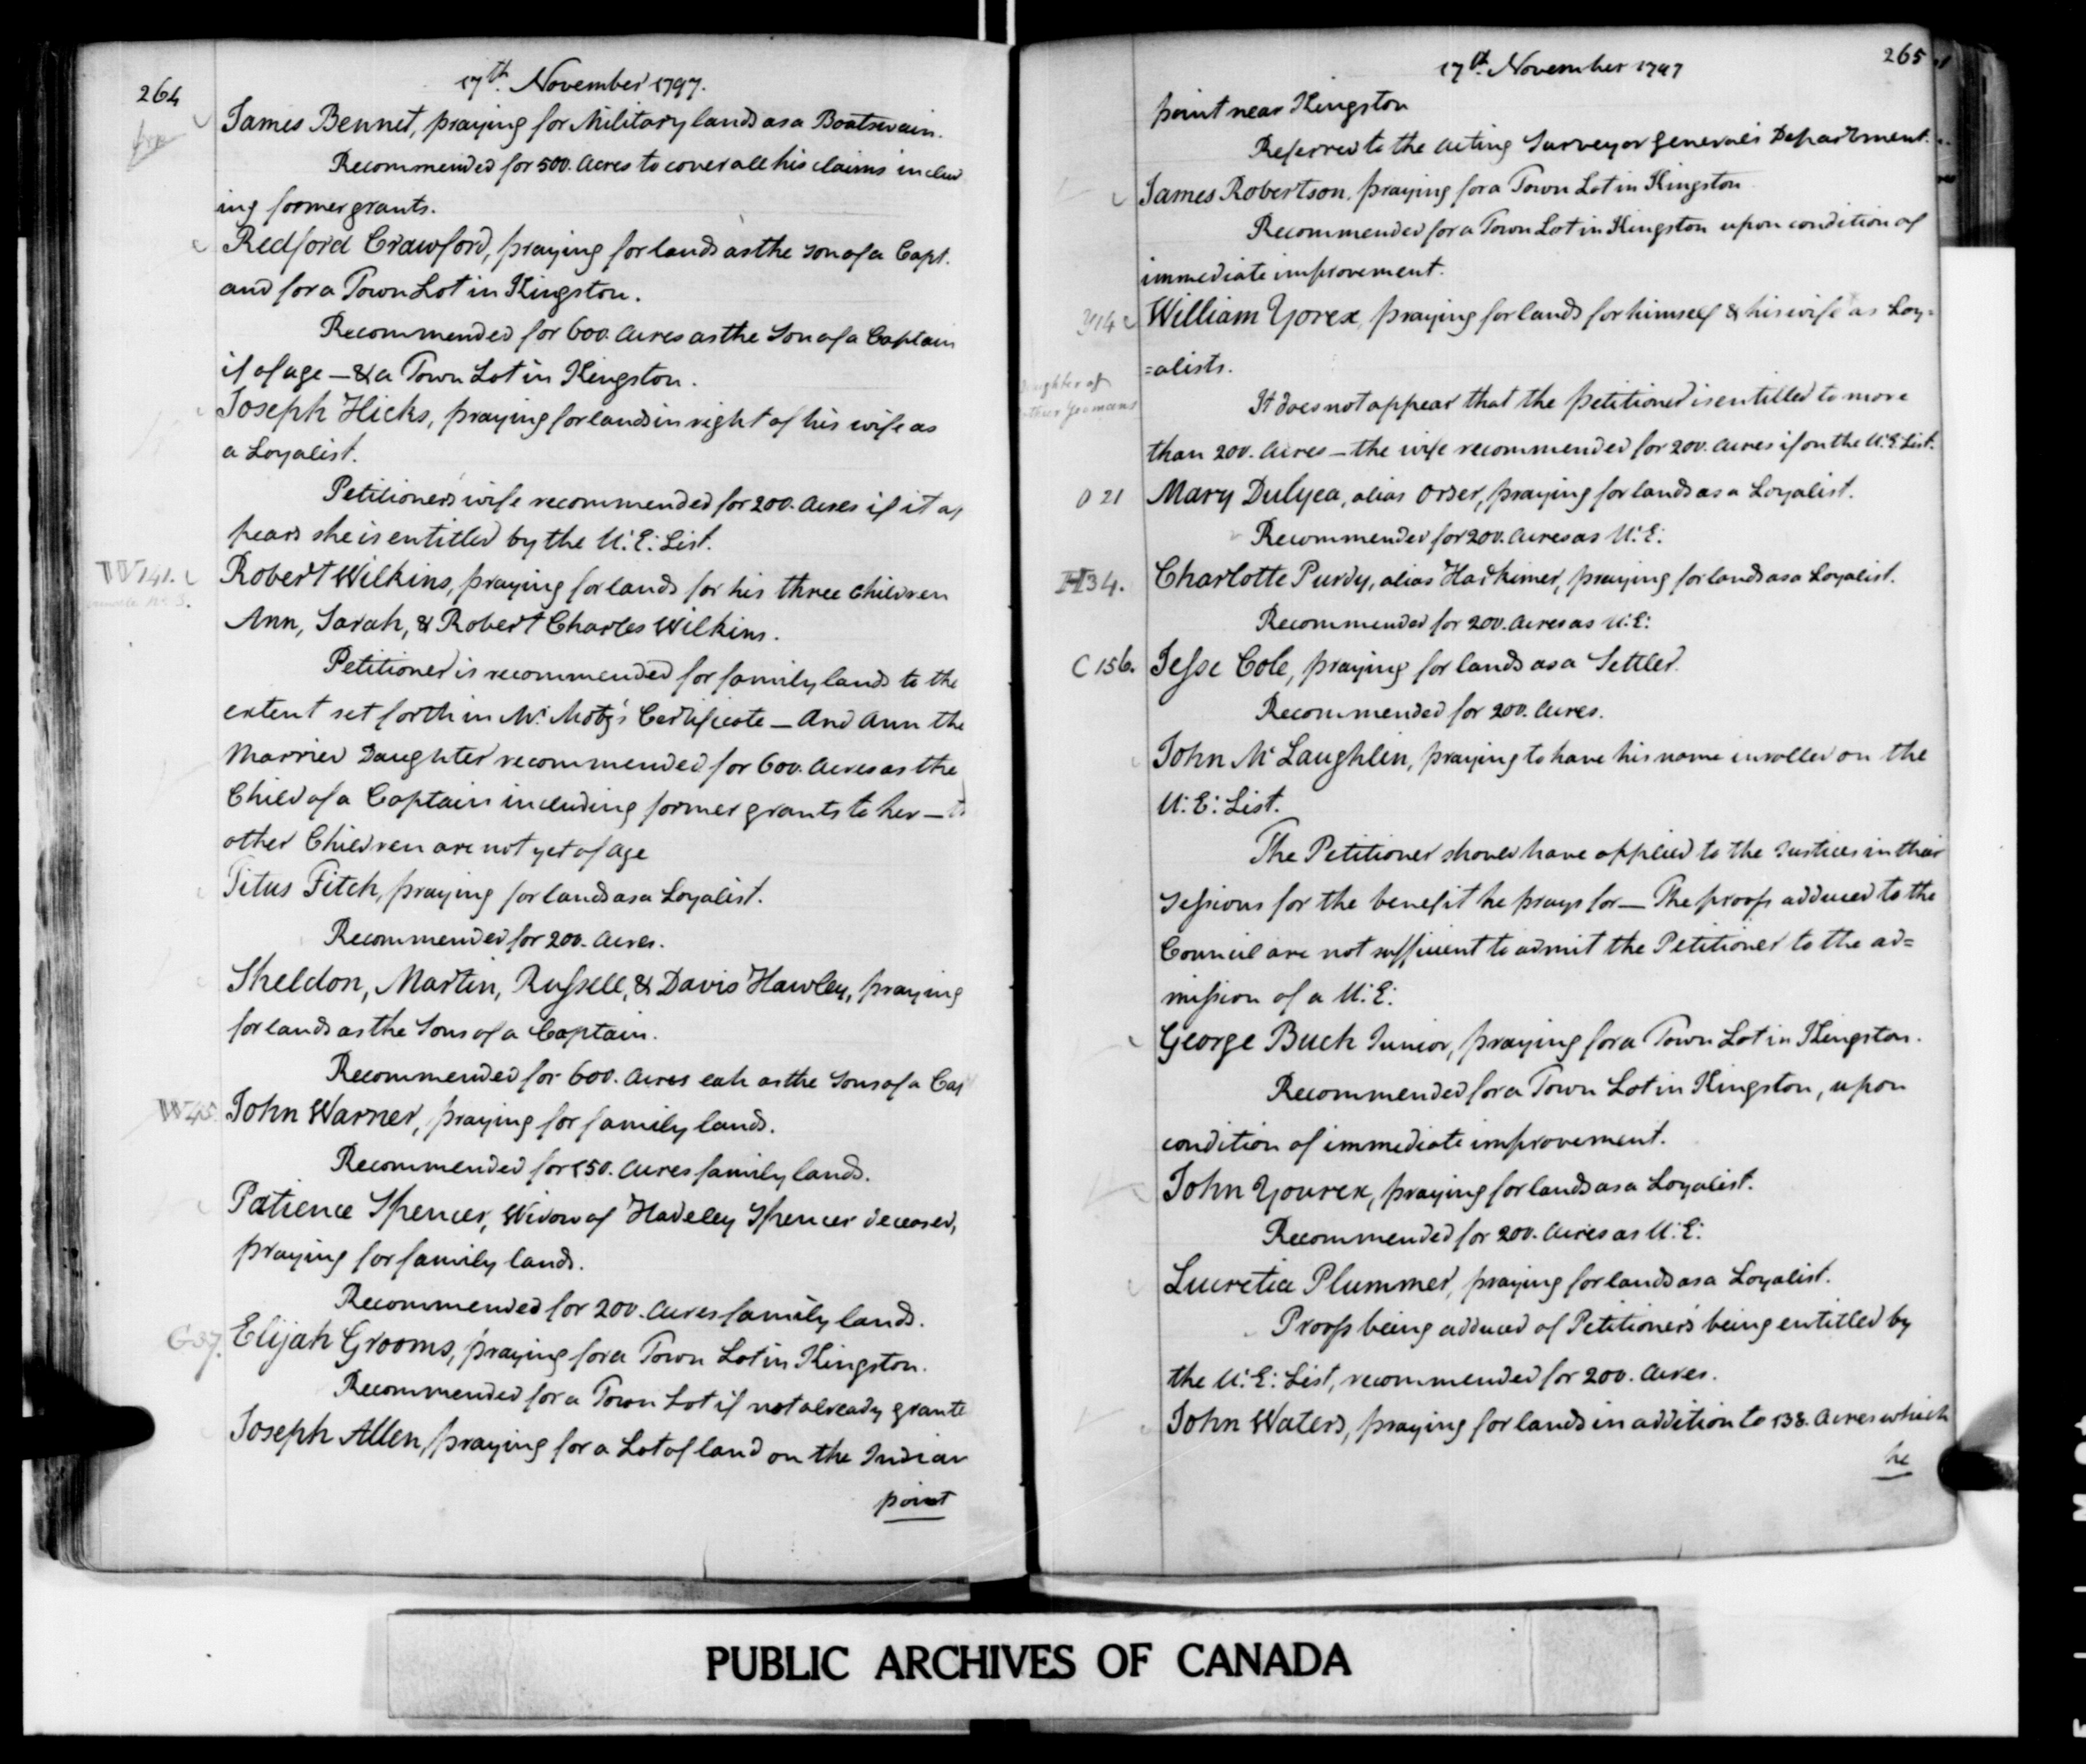 264
17th. November 1797.
James Bennet, praying for Military lands as a Boatswain.
Recommended for 500. Acres to cover all his claims includ
ing former grants.
Redford Crawford, praying for lands as the son of a Capt.
and for a Town Lot in Kingston.
Recommended for 600. Acres as the Son of a Captain
if of age — & a Town Lot in Kingston.
Joseph Hicks, praying for lands in right of his wife as
a Loyalist.
Petitioner's wife recommended for 200. Acres if it ap
pears she is entitled by the U.E. List.
W141.
Robert Wilkins, praying for lands for his three Children
Ann, Sarah, & Robert Charles Wilkins.
Petitioner is recommended for family lands to the
extent set forth in Mr. Certificate — And Ann the
Married Daughter recommended for 600. Acres as the
Child of a Captain including former grants to her —
other Children are not yet of age
Titus Fitch, praying for lands as a Loyalist.
Recommended for 200. Acres.
Sheldon, Martin, Russell, & Davis Hawley, praying
for lands as the Sons of a Captain.
Recommended for 600. Acres each as the Sons of a Cap
W45.
John Warner, praying for family lands.
Recommended for 150. Acres family lands.
Patience Spencer, Widow of Hadeley Spencer deceased,
praying for family lands.
Recommended for 200. Acres family lands.
G37.
Elijah Grooms, praying for a Town Lot in Kingston.
Recommended for a Town Lot if not already grante
Joseph Allen, praying for a Lot of land on the Indian
point
265
17th. November 1797
point near Kingston
Referred to the Acting Surveyor General's Department.
James Robertson, praying for a Town Lot in Kingston
Recommended for a Town Lot in Kingston upon condition of
immediate improvement.
Y14
William Yorex, praying for lands for himself & his wife as Loy=
=alists.
Daughter of
Yeomans
It does not appear that the Petitioner is entitled to more
than 200. Acres — the wife recommended for 200. Acres if on the U.E. List.
O 21
Mary Dulyea, alias Orser, praying for lands as a Loyalist.
Recommended for 200. Acres as U.E.
H34.
Charlotte Purdy, alias Harkimer, praying for lands as a Loyalist.
Recommended for 200. Acres as U.E.
C 156.
Jesse Cole, praying for lands as a Settler.
Recommended for 200. Acres.
John McLaughlin, praying to have his name inrolled on the
U.E. List.
The Petitioner should have applied to the Justices in their
Sessions for the benefit he prays for — The proofs adduced to the
Council are not sufficient to admit the Petitioner to the ad=
mission of a U.E.
George Buck Junior, praying for a Town Lot in Kingston.
Recommended for a Town Lot in Kingston, upon
condition of immediate improvement.
John Yourex, praying for lands as a Loyalist.
Recommended for 200. Acres as U.E.
Lucretia Plummer, praying for lands as a Loyalist.
Proofs being adduced of Petitioner's being entitled by
the U.E. List, recommended for 200. Acres.
John Waters, praying for lands in addition to 138. Acres which
he
PUBLIC ARCHIVES OF CANADA